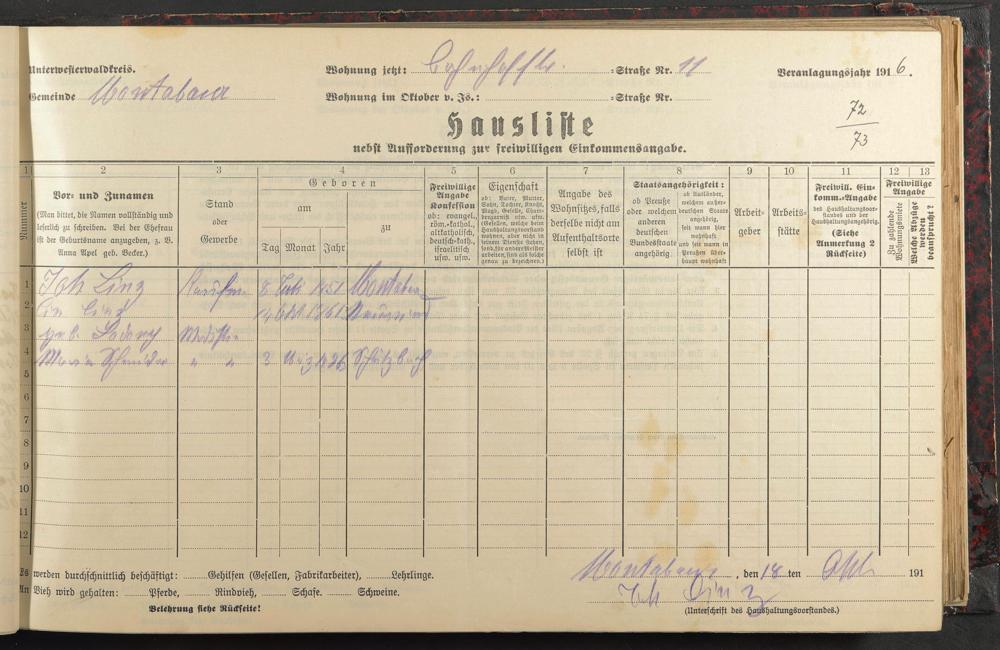 Unterwesterwaldkreis. Wohnung jetzt: Bahnhofstr. -Straße Nr. 11 Veranlagungsjahr 1916.
Gemeinde Montabaur Wohnung im Oktober v. Js.: -Straße Nr.
72
73
Hausliste
nebst Aufforderung zur freiwilligen Einkommensangabe.
1 2 3 4 5 6 7 8 9 10 11 12 13
Nummer
Vor- und Zunamen
(Man bittet, die Namen vollständig und
leserlich zu schreiben. Bei der Ehefrau
ist der Geburtsname anzugeben, z. B.
Anna Apel geb. Becker.)
Stand
oder
Gewerbe
Geboren
am
zu
Tag Monat Jahr
Freiwillige
Angabe
Konfession
ob: evangel.,
röm.-kathol.,
altkatholisch,
deutsch-kath.,
israelitisch
usw. usw.
Eigenschaft
Angabe des
Wohnsitzes, falls
derselbe nicht am
Aufenthaltsorte
selbst ist
Staatsangehörigkeit:
ob Preuße
oder welchem
anderen
deutschen
Bundesstaate
angehörig.
ob Ausländer,
welchem außer-
deutschen Staate
angehörig,
seit wann hier
wohnhaft
und seit wann in
Preußen über-
haupt wohnhaft
Arbeit-
geber
Arbeits-
stätte
Freiwill. Ein-
komm.-Angabe
des Haushaltungsvor-
standes und der
Haushaltungsangehörig.
(Siehe
Anmerkung 2
Rückseite)
Freiwillige
Angabe
Zu zahlende
Wohnungsmiete
Welche Abzüge
werden
beansprucht?
1 Joh Linz Kaufm 8 Juli 1851 Montabau
2 Linz 1861
3 geb. Modistin
4 Maria Schneider " " 3
5
6
7
8
9
10
11
12
Es werden durchschnittlich beschäftigt: Gehilfen (Gesellen, Fabrikarbeiter), Lehrlinge.
An Vieh wird gehalten: Pferde, Rindvieh, Schafe. Schweine.
Belehrung siehe Rückseite!
Montabaur, den 18 ten Okt 191
Joh Linz
(Unterschrift des Haushaltungsvorstandes.)